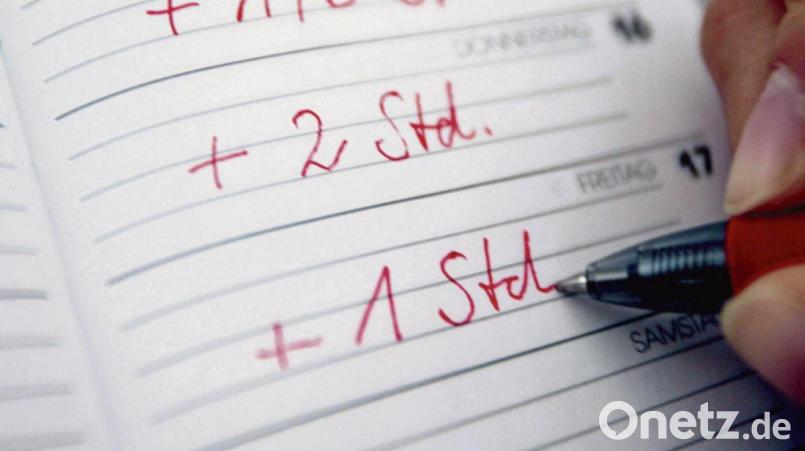 DONNERSTAG 16
+ 2 Std.
FREITAG 17
+ 1 Std
SAMSTA
Onetz.de